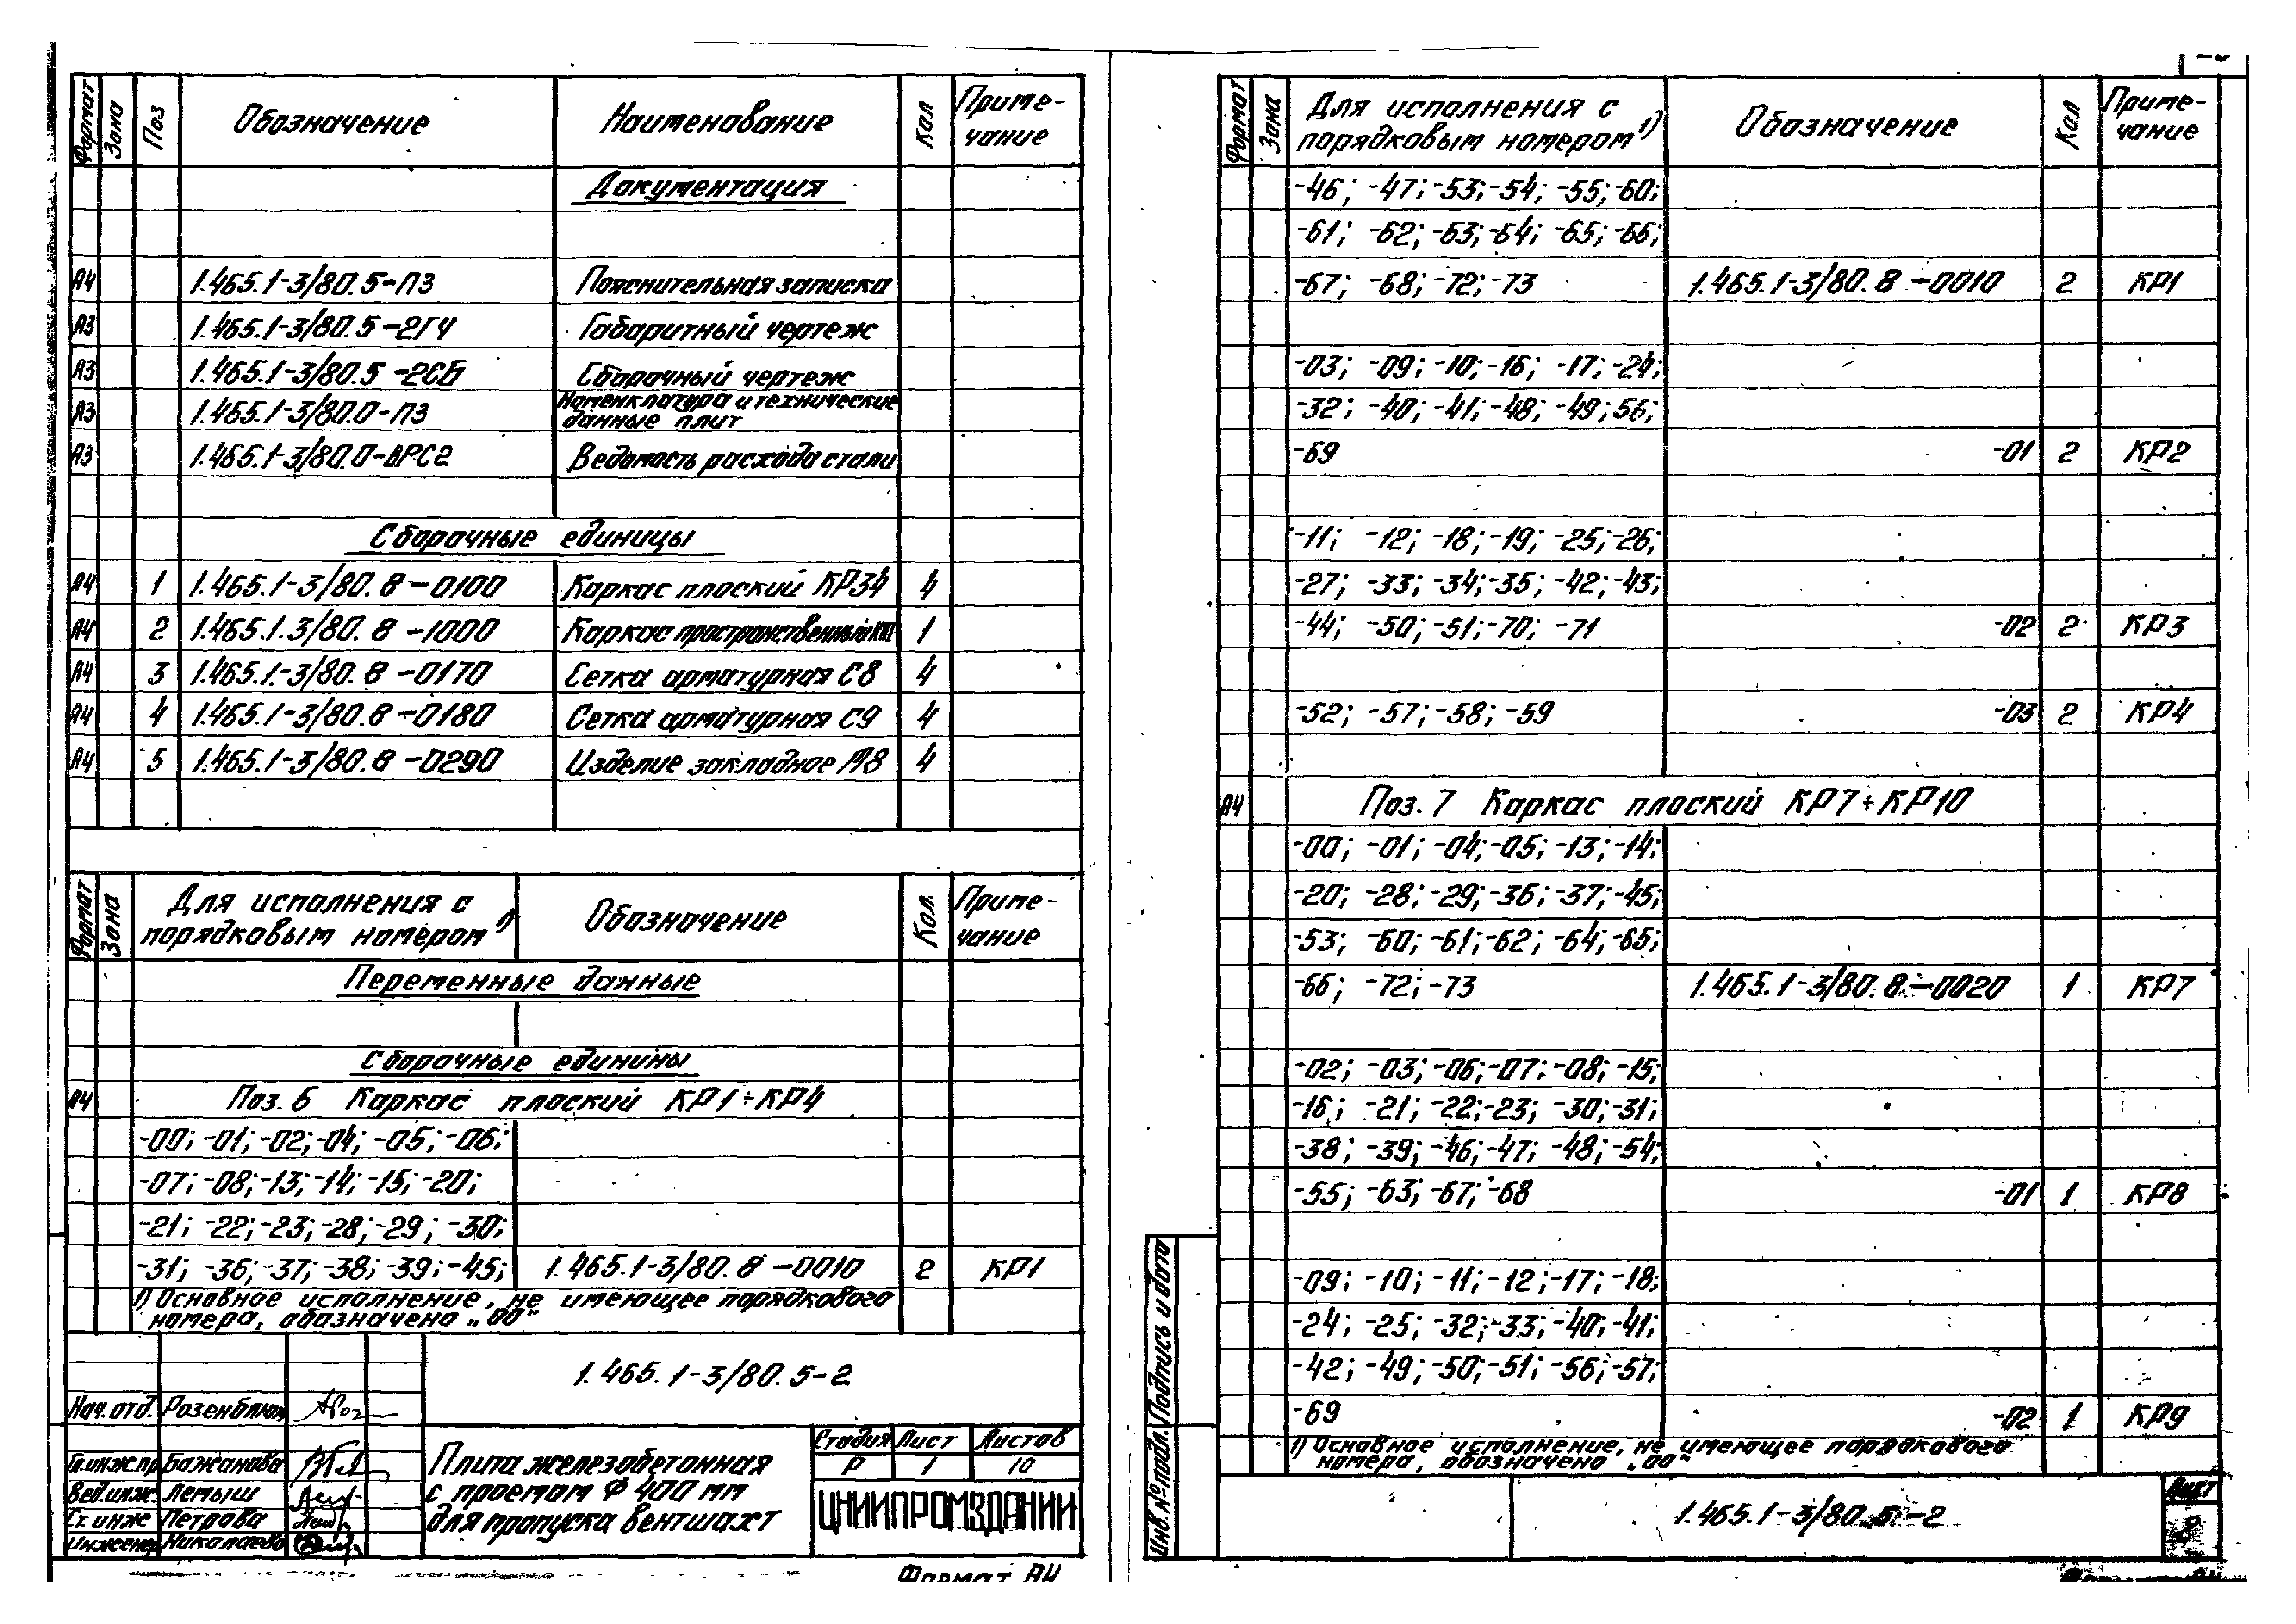 Формат Зона Поз Обозначение Наименование Кол Приме-
чание
Документация
А4 1.465.1-3/80.5-ПЗ Пояснительная записка
А3 1.465.1-3/80.5-2ГЧ Габаритный чертеж
А3 1.465.1-3/80.5-2СБ Сборочный чертеж
А3 1.465.1-3/80.0-ПЗ Номенклатура и технические
данные плит
А3 1.465.1-3/80.0-ВРС2 Ведомость расхода стали
Сборочные единицы
А4 1 1.465.1-3/80.8-0100 Каркас плоский КР34 4
А4 2 1.465.1.3/80.8-1000 Каркас пространственный 1
А4 3 1.465.1.-3/80.8-0170 Сетка арматурная С8 4
А4 4 1.465.1-3/80.8-0180 Сетка арматурная С9 4
А4 5 1.465.1-3/80.8-0290 Изделие закладное М8 4
Формат Зона Для исполнения с Обозначение Кол. Приме-
порядковым номером 1) чание
Переменные данные
Сборочные единицы
А4 Поз. 6 Каркас плоский КР1÷КР4
-00; -01; -02; -04; -05; -06;
-07; -08; -13; -14; -15; -20;
-21; -22; -23; -28; -29; -30;
-31; -36; -37; -38; -39; -45; 1.465.1-3/80.8-0010 2 КР1
1) Основное исполнение, не имеющее порядкового
номера, обозначено „00"
1.465.1-3/80.5-2
Нач. отд. Розенблюм
Гл.инж.пр. Бажанова
Вед.инж. Лемыш
Ст. инж Петрова
Инженер Николаева
Плита железобетонная
с проемом Ф 400 мм
для пропуска вентшахт
Стадия Лист Листов
Р 1 10
ЦНИИПРОМЗДАНИЙ
Формат А4
Формат Зона Для исполнения с Обозначение Кол Приме-
порядковым номером 1) чание
-46; -47; -53; -54; -55; -60;
-61; -62; -63; -64; -65; -66;
-67; -68; -72; -73 1.465.1-3/80.8-0010 2 КР1
-03; -09; -10; -16; -17; -24;
-32; -40; -41; -48; -49; 56;
-69 -01 2 КР2
-11; -12; -18; -19; -25; -26;
-27; -33; -34; -35; -42; -43;
-44; -50; -51; -70; -71 -02 2 КР3
-52; -57; -58; -59 -03 2 КР4
А4 Поз. 7 Каркас плоский КР7÷КР10
-00; -01; -04; -05; -13; -14;
-20; -28; -29; -36; -37; -45;
-53; -60; -61; -62; -64; -65;
-66; -72; -73 1.465.1-3/80.8-0020 1 КР7
-02; -03; -06; -07; -08; -15;
-16; -21; -22; -23; -30; -31;
-38; -39; -46; -47; -48; -54;
-55; -63; -67; -68 -01 1 КР8
-09; -10; -11; -12; -17; -18;
-24; -25; -32; -33; -40; -41;
-42; -49; -50; -51; -56; -57;
-69 -02 1 КР9
1) Основное исполнение, не имеющее порядкового
номера, обозначено „00"
Инв.№подл. Подпись и дата
1.465.1-3/80.5-2
Лист